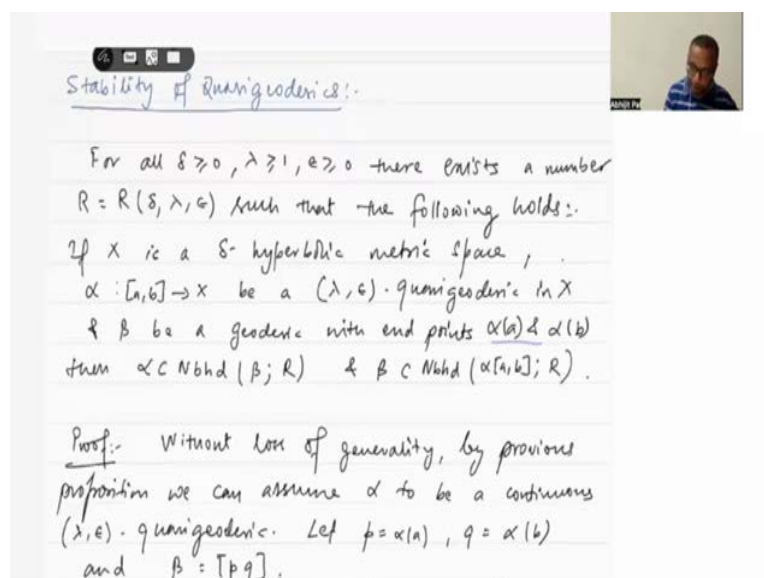 Stability of Quasigeodesics:-
Abhijit Pal
For all δ ≥ 0, λ ≥ 1, ϵ ≥ 0 there exists a number
R = R(δ, λ, ϵ) such that the following holds:-
If X is a δ-hyperbolic metric space,
α : [a,b] → X be a (λ, ϵ)-quasigeodesic in X
& β be a geodesic with end points α(a) & α(b)
then α ⊂ Nbhd (β; R) & β ⊂ Nbhd (α[a,b]; R).
Proof:- Without loss of generality, by previous
proposition we can assume α to be a continuous
(λ, ϵ)-quasigeodesic. Let p = α(a), q = α(b)
and β = [p q].